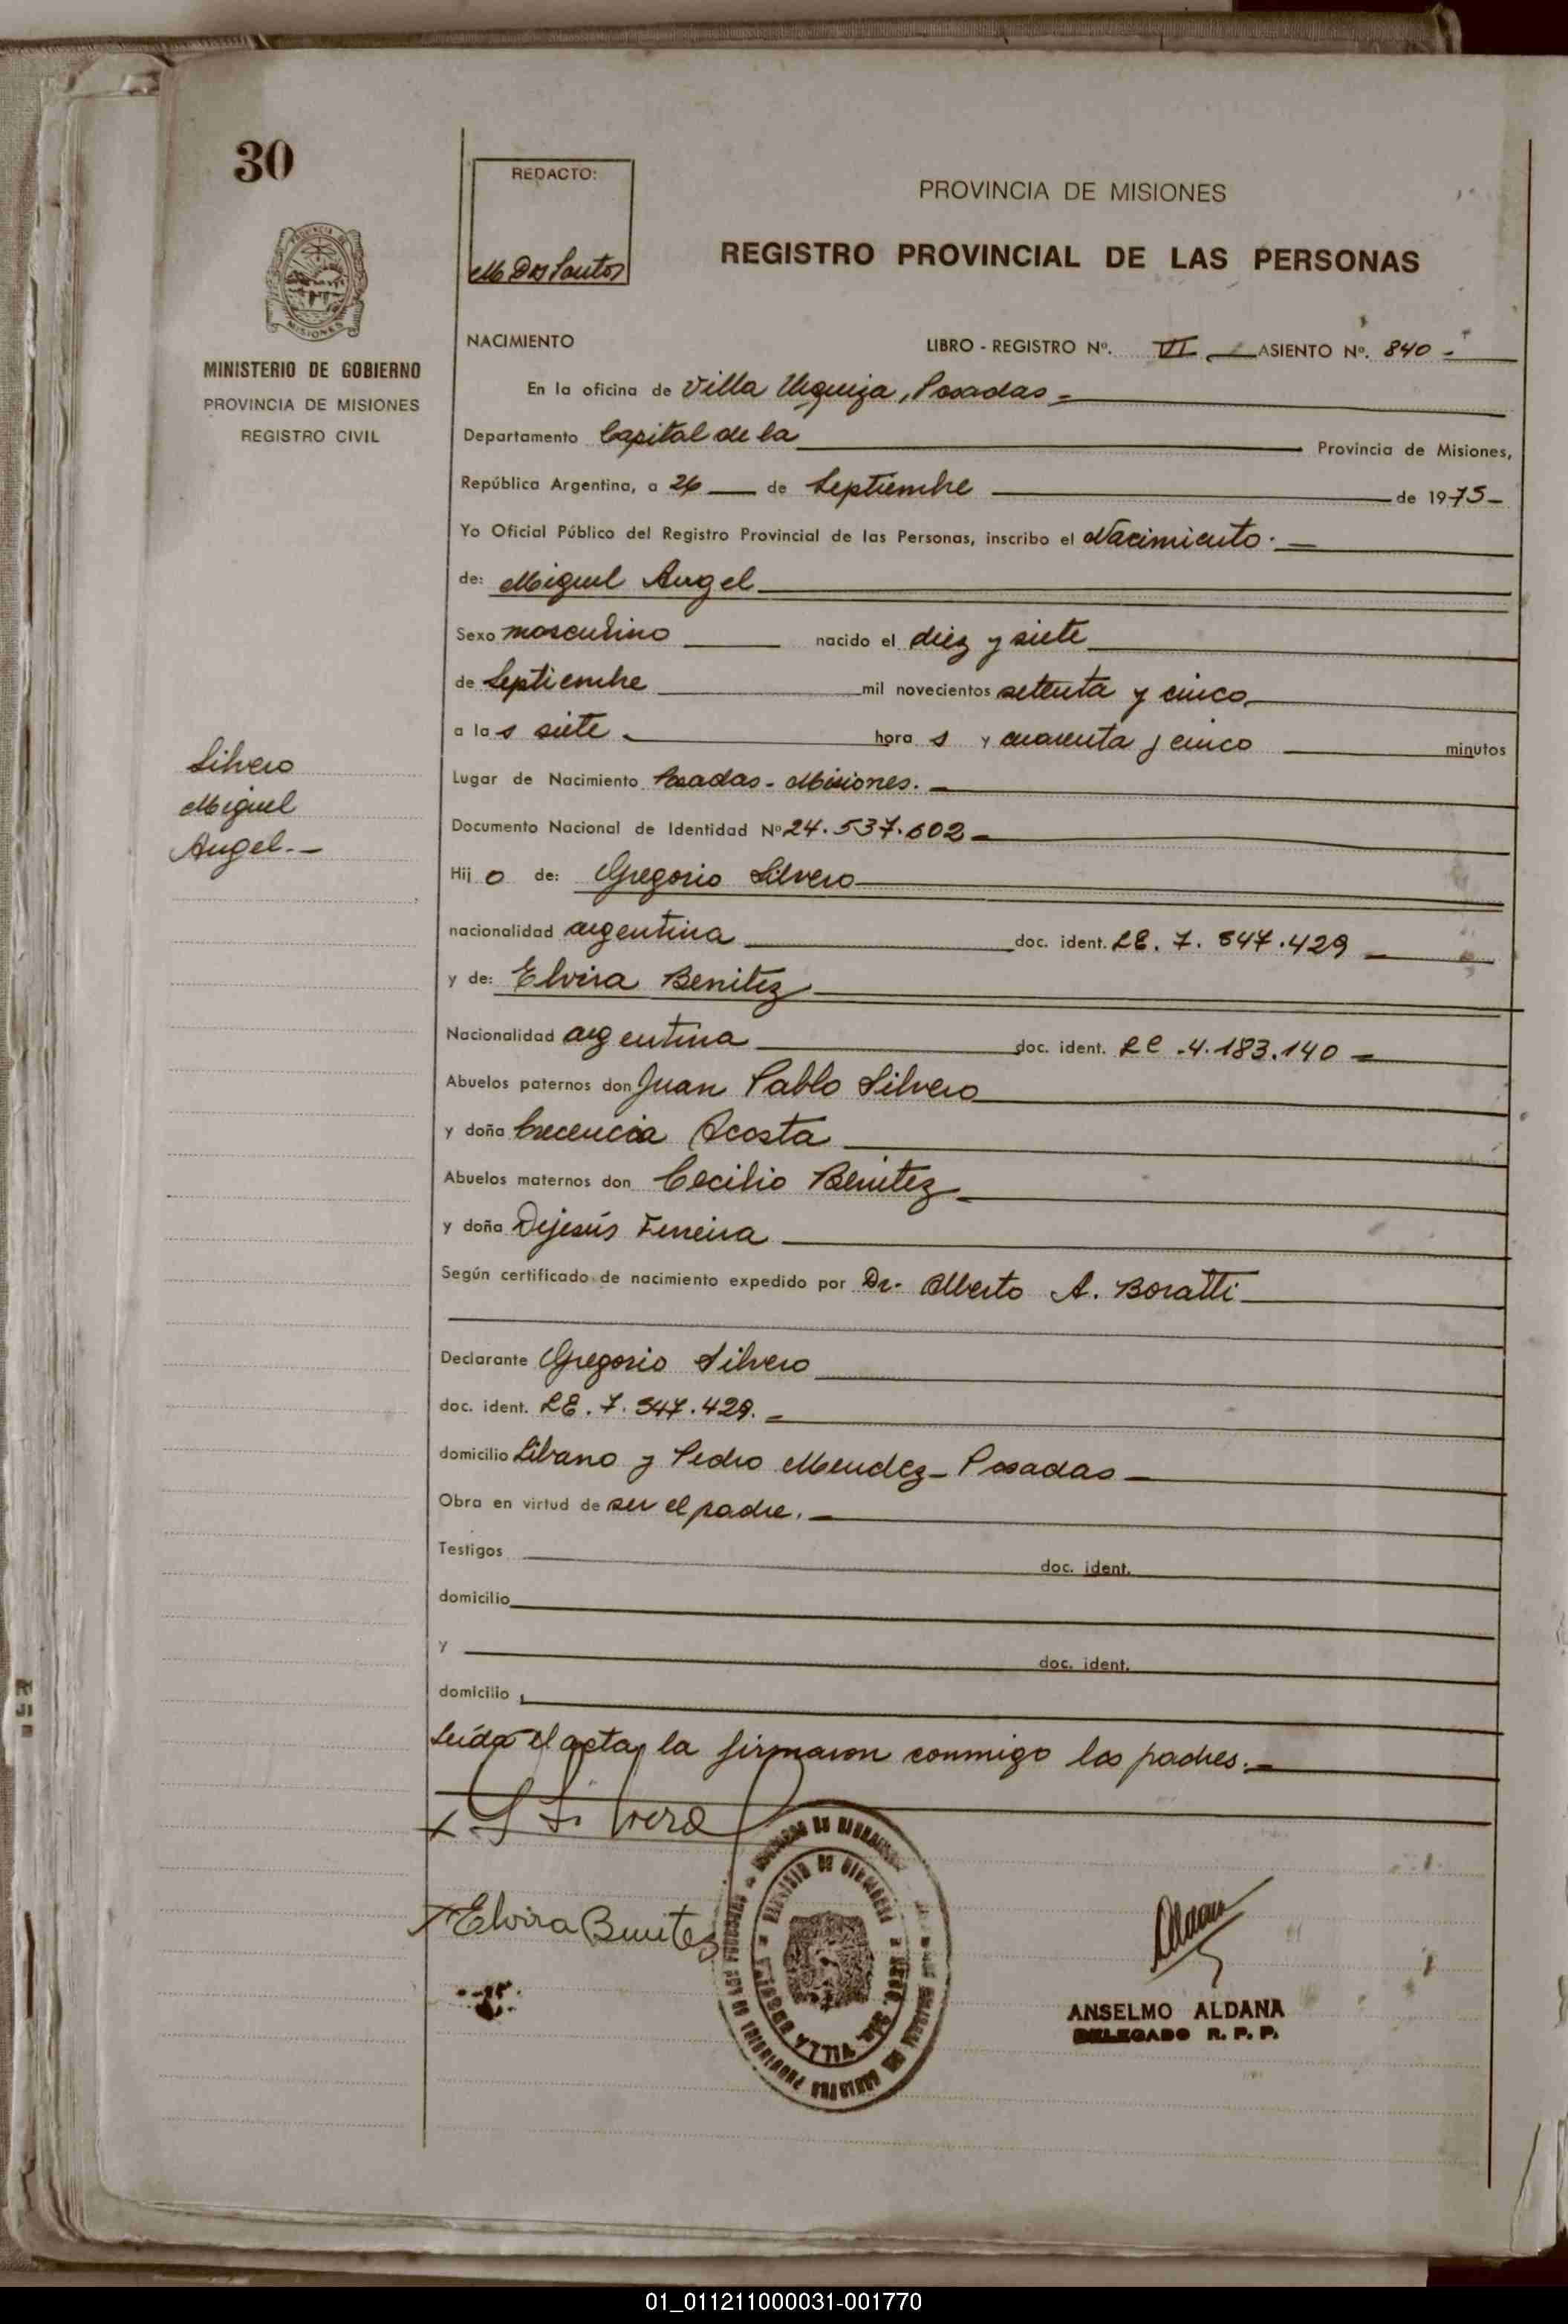 30
REDACTO:
M. Dos Santos
PROVINCIA DE MISIONES
REGISTRO PROVINCIAL DE LAS PERSONAS
MISIONES
MINISTERIO DE GOBIERNO
PROVINCIA DE MISIONES
REGISTRO CIVIL
NACIMIENTO LIBRO - REGISTRO Nº. VI ASIENTO Nº. 840-
En la oficina de Villa Urquiza, Posadas-
Departamento Capital de la Provincia de Misiones,
República Argentina, a 26 de Septiembre de 1975-
Yo Oficial Público del Registro Provincial de las Personas, inscribo el Nacimiento.-
de: Miguel Angel
Sexo masculino nacido el diez y siete
de Septiembre mil novecientos setenta y cinco
a las siete hora s y cuarenta y cinco minutos
Silvero
Miguel
Angel.-
Lugar de Nacimiento Posadas - Misiones.-
Documento Nacional de Identidad Nº 24.537.602-
Hijo de: Gregorio Silvero
nacionalidad argentina doc. ident. LE. 7.547.429-
y de: Elvira Benitez
Nacionalidad argentina doc. ident. LC .4.183.140-
Abuelos paternos don Juan Pablo Silvero
y doña Crecencia Acosta
Abuelos maternos don Cecilio Benitez
y doña Dejesús Ferreira
Según certificado de nacimiento expedido por Dr. Alberto A. Boratti
Declarante Gregorio Silvero
doc. ident. LE. 7.547.429.-
domicilio Libano y Pedro Mendez- Posadas-
Obra en virtud de ser el padre.-
Testigos doc. ident.
domicilio
y doc. ident.
domicilio
Leída el acta, la firmaron conmigo los padres.-
x G Silvero
x Elvira Benitez
VILLA URQUIZA
ANSELMO ALDANA
DELEGADO R. P. P.
01_011211000031-001770